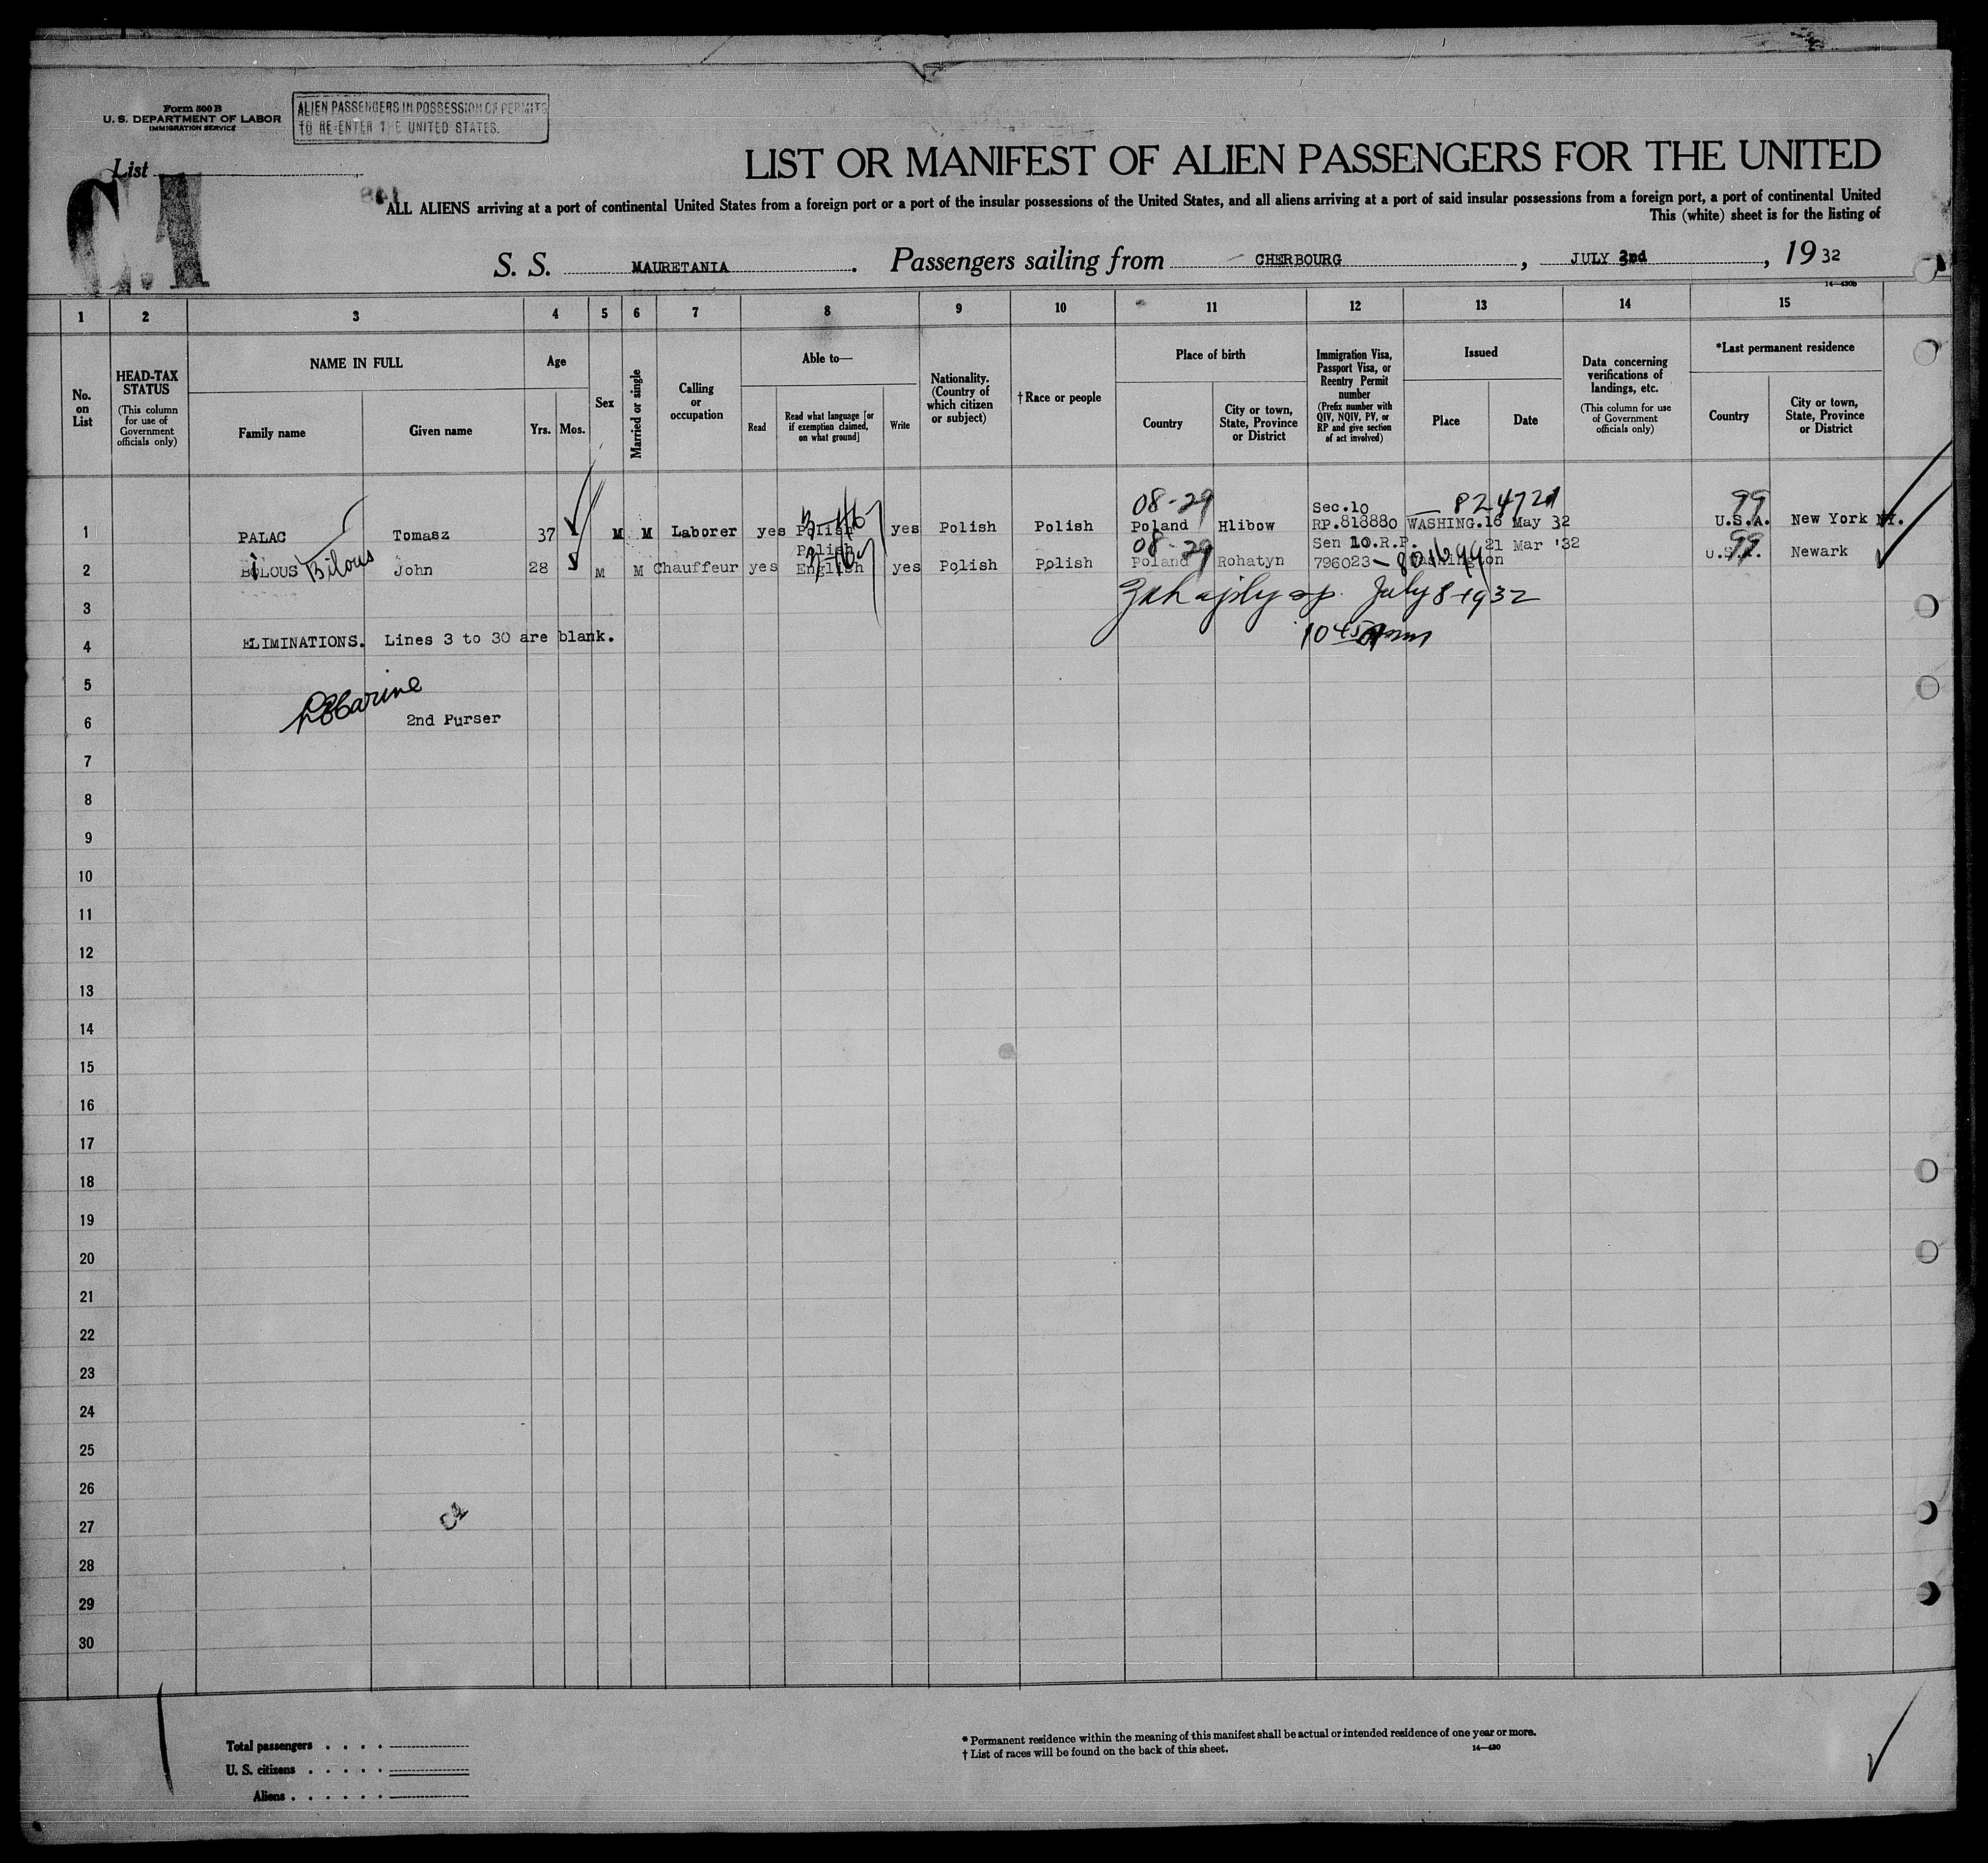 Form 500 B
U. S. DEPARTMENT OF LABOR
IMMIGRATION SERVICE
ALIEN PASSENGERS IN POSSESSION OF PERMITS
TO RE-ENTER THE UNITED STATES.
List
C.1
LIST OR MANIFEST OF ALIEN PASSENGERS FOR THE UNITED
ALL ALIENS arriving at a port of continental United States from a foreign port or a port of the insular possessions of the United States, and all aliens arriving at a port of said insular possessions from a foreign port, a port of continental United
This (white) sheet is for the listing of
S. S. MAURETANIA. Passengers sailing from CHERBOURG, JULY 3nd, 1932
1 2 3 4 5 6 7 8 9 10 11 12 13 14 15
No. on List
HEAD-TAX STATUS (This column for use of Government officials only)
NAME IN FULL
Family name Given name
Age
Yrs. Mos.
Sex
Married or single
Calling or occupation
Able to—
Read Read what language [or if exemption claimed, on what ground] Write
Nationality. (Country of which citizen or subject)
†Race or people
Place of birth
Country City or town, State, Province or District
Immigration Visa, Passport Visa, or Reentry Permit number (Prefix number with QIV, NQIV, PV, or RP and give section of act involved)
Issued
Place Date
Data concerning verifications of landings, etc. (This column for use of Government officials only)
*Last permanent residence
Country City or town, State, Province or District
08-29 Sec.10 — 824721 99
1 PALAC Tomasz 37 M M Laborer yes Polish yes Polish Polish Poland Hlibow RP.818880 WASHING. 16 May 32 U.S.A. New York NY.
Polish 08-29 Sen 10.R.P. 21 Mar '32 99
2 BILOUS Bilous John 28 M M Chauffeur yes English yes Polish Polish Poland Rohatyn 796023 Washington U.S.A. Newark
3 July 8-1932
4 ELIMINATIONS. Lines 3 to 30 are blank.
5
6 2nd Purser
7
8
9
10
11
12
13
14
15
16
17
18
19
20
21
22
23
24
25
26
27 C1
28
29
30
Total passengers
U. S. citizens
Aliens
* Permanent residence within the meaning of this manifest shall be actual or intended residence of one year or more.
† List of races will be found on the back of this sheet.
14—430